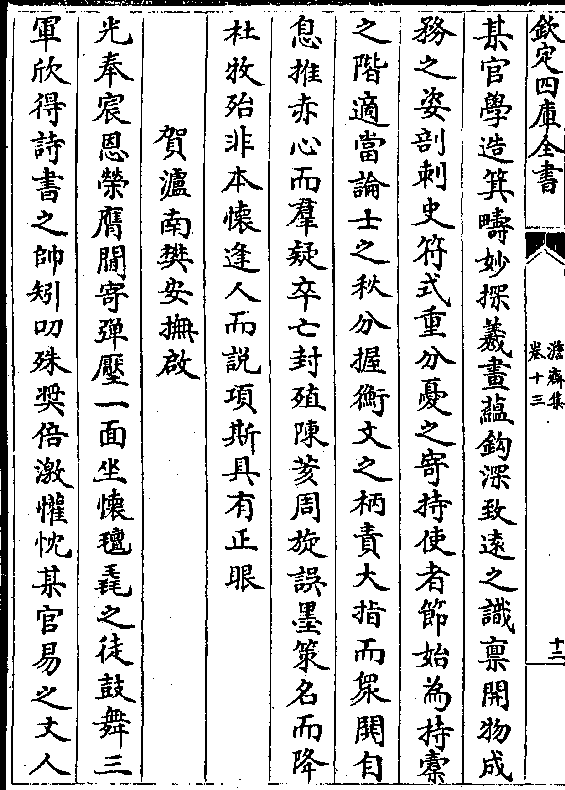 欽定四庫全書
澹齋集
卷十三
十二
某官學造箕疇妙探羲畫蘊鈎深致遠之識稟開物成
務之姿剖刺史符式重分憂之寄持使者節始為持槖
之階適當論士之秋分握衡文之柄責大指而衆闗自
息推赤心而羣疑卒亡封殖陳荄周旋誤墨策名而降
杜牧殆非本懷逢人而説項斯具有正眼
賀瀘南樊安撫啟
光奉宸恩榮膺閫寄彈壓一面坐懷氊毳之徒鼓舞三
軍欣得詩書之帥矧叨殊奬倍激懽忱某官易之丈人